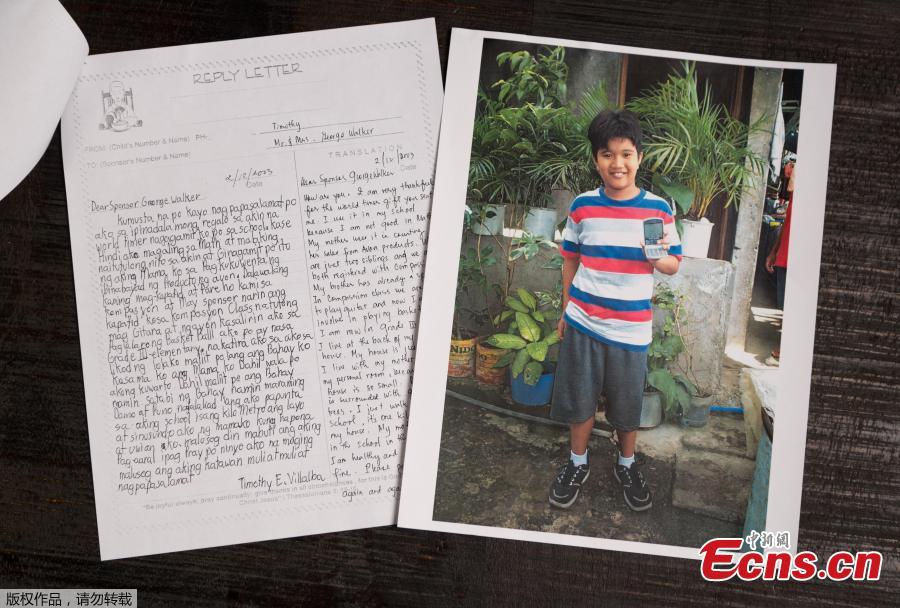 REPLY LETTER
FROM: (Child's Number & Name) PH-
Timothy
TO: (Sponsor's Number & Name)
Mr. & Mrs. George Walker
2/12/2003
Date
Dear Sponsor George Walker
Kumusta na po kayo nagpapasalamat po
ako sa ipinadala mong regalo sa akin na
world timer nagagamit ko po sa school kase
Hindi ako magaling sa Math at malaking
naitutulong nito sa akin at Ginagamit po ito
ng aking Mama ko sa pag kukuwenta ng
Producto ng avon dalawa lang
kaming mag-kapatid at Pure ho kami sa
kompasyon at May sponser narin ang
kapatid ko sa kompasyon Class natutong
mag Gitara at ngayon kasali rin ako sa
paglalarong Basket ball ako po ay nasa
Grade III-elementarya nakatira ako sa
likod ng lolo ko maliit po lang ang Bahay ko
kasama ko ang Mama ko Dahil wala po
aking kuwarto Dahil maliit po ang Bahay
namin sa tabi ng Bahay namin maraming
at Puno naglalakad lang ako papunta
sa aking school isang kilo Metro ang layo
at sinusundo ako ng mama ko kung hapon
at ulan ako malusog din mabuti ang aking
pag aaral ipag Pray po ninyo ako na maging
malusog ang aking katawan muli at muli at
nagpapasalamat
Timothy E. Villalba
TRANSLATION
2/12/2003
Date
Dear Sponsor George Walker
How are you, I am very thankful
for the world timer gift you
me. I use it in my school
because I am not good in
My mother use it in counting
her sales from Avon products.
are just two siblings and we
both registered with
My brother has already a
In compassion class we are
to play guitar and now I
involve in playing
I am now in Grade III
I live at the back of my
house. My house is
I live with my mother
my personal room,
house is so small.
is surrounded with
trees, I just walk
school, its one
my house. My
in the school
I am healthy and
fine. Please
again and
"Be joyful always; pray continually; give thanks in all circumstances, for this is
Christ Jesus" 1 Thessalonians 5:16-18
NIDO
中新網
Ecns.cn
版权作品，请勿转载